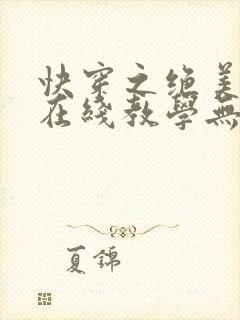 快穿之绝美
在线教學無
夏錦